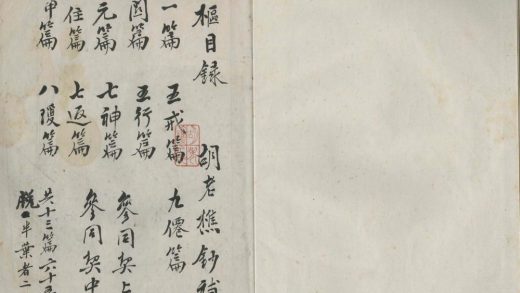 樞目録 胡老樵鈔
一篇 五戒篇 九僊篇
篇 五行篇 參同契上
元篇 七神篇 參同契中
住篇 七返篇
篇 八瓊篇 共十三篇六十五
脱一半葉者二